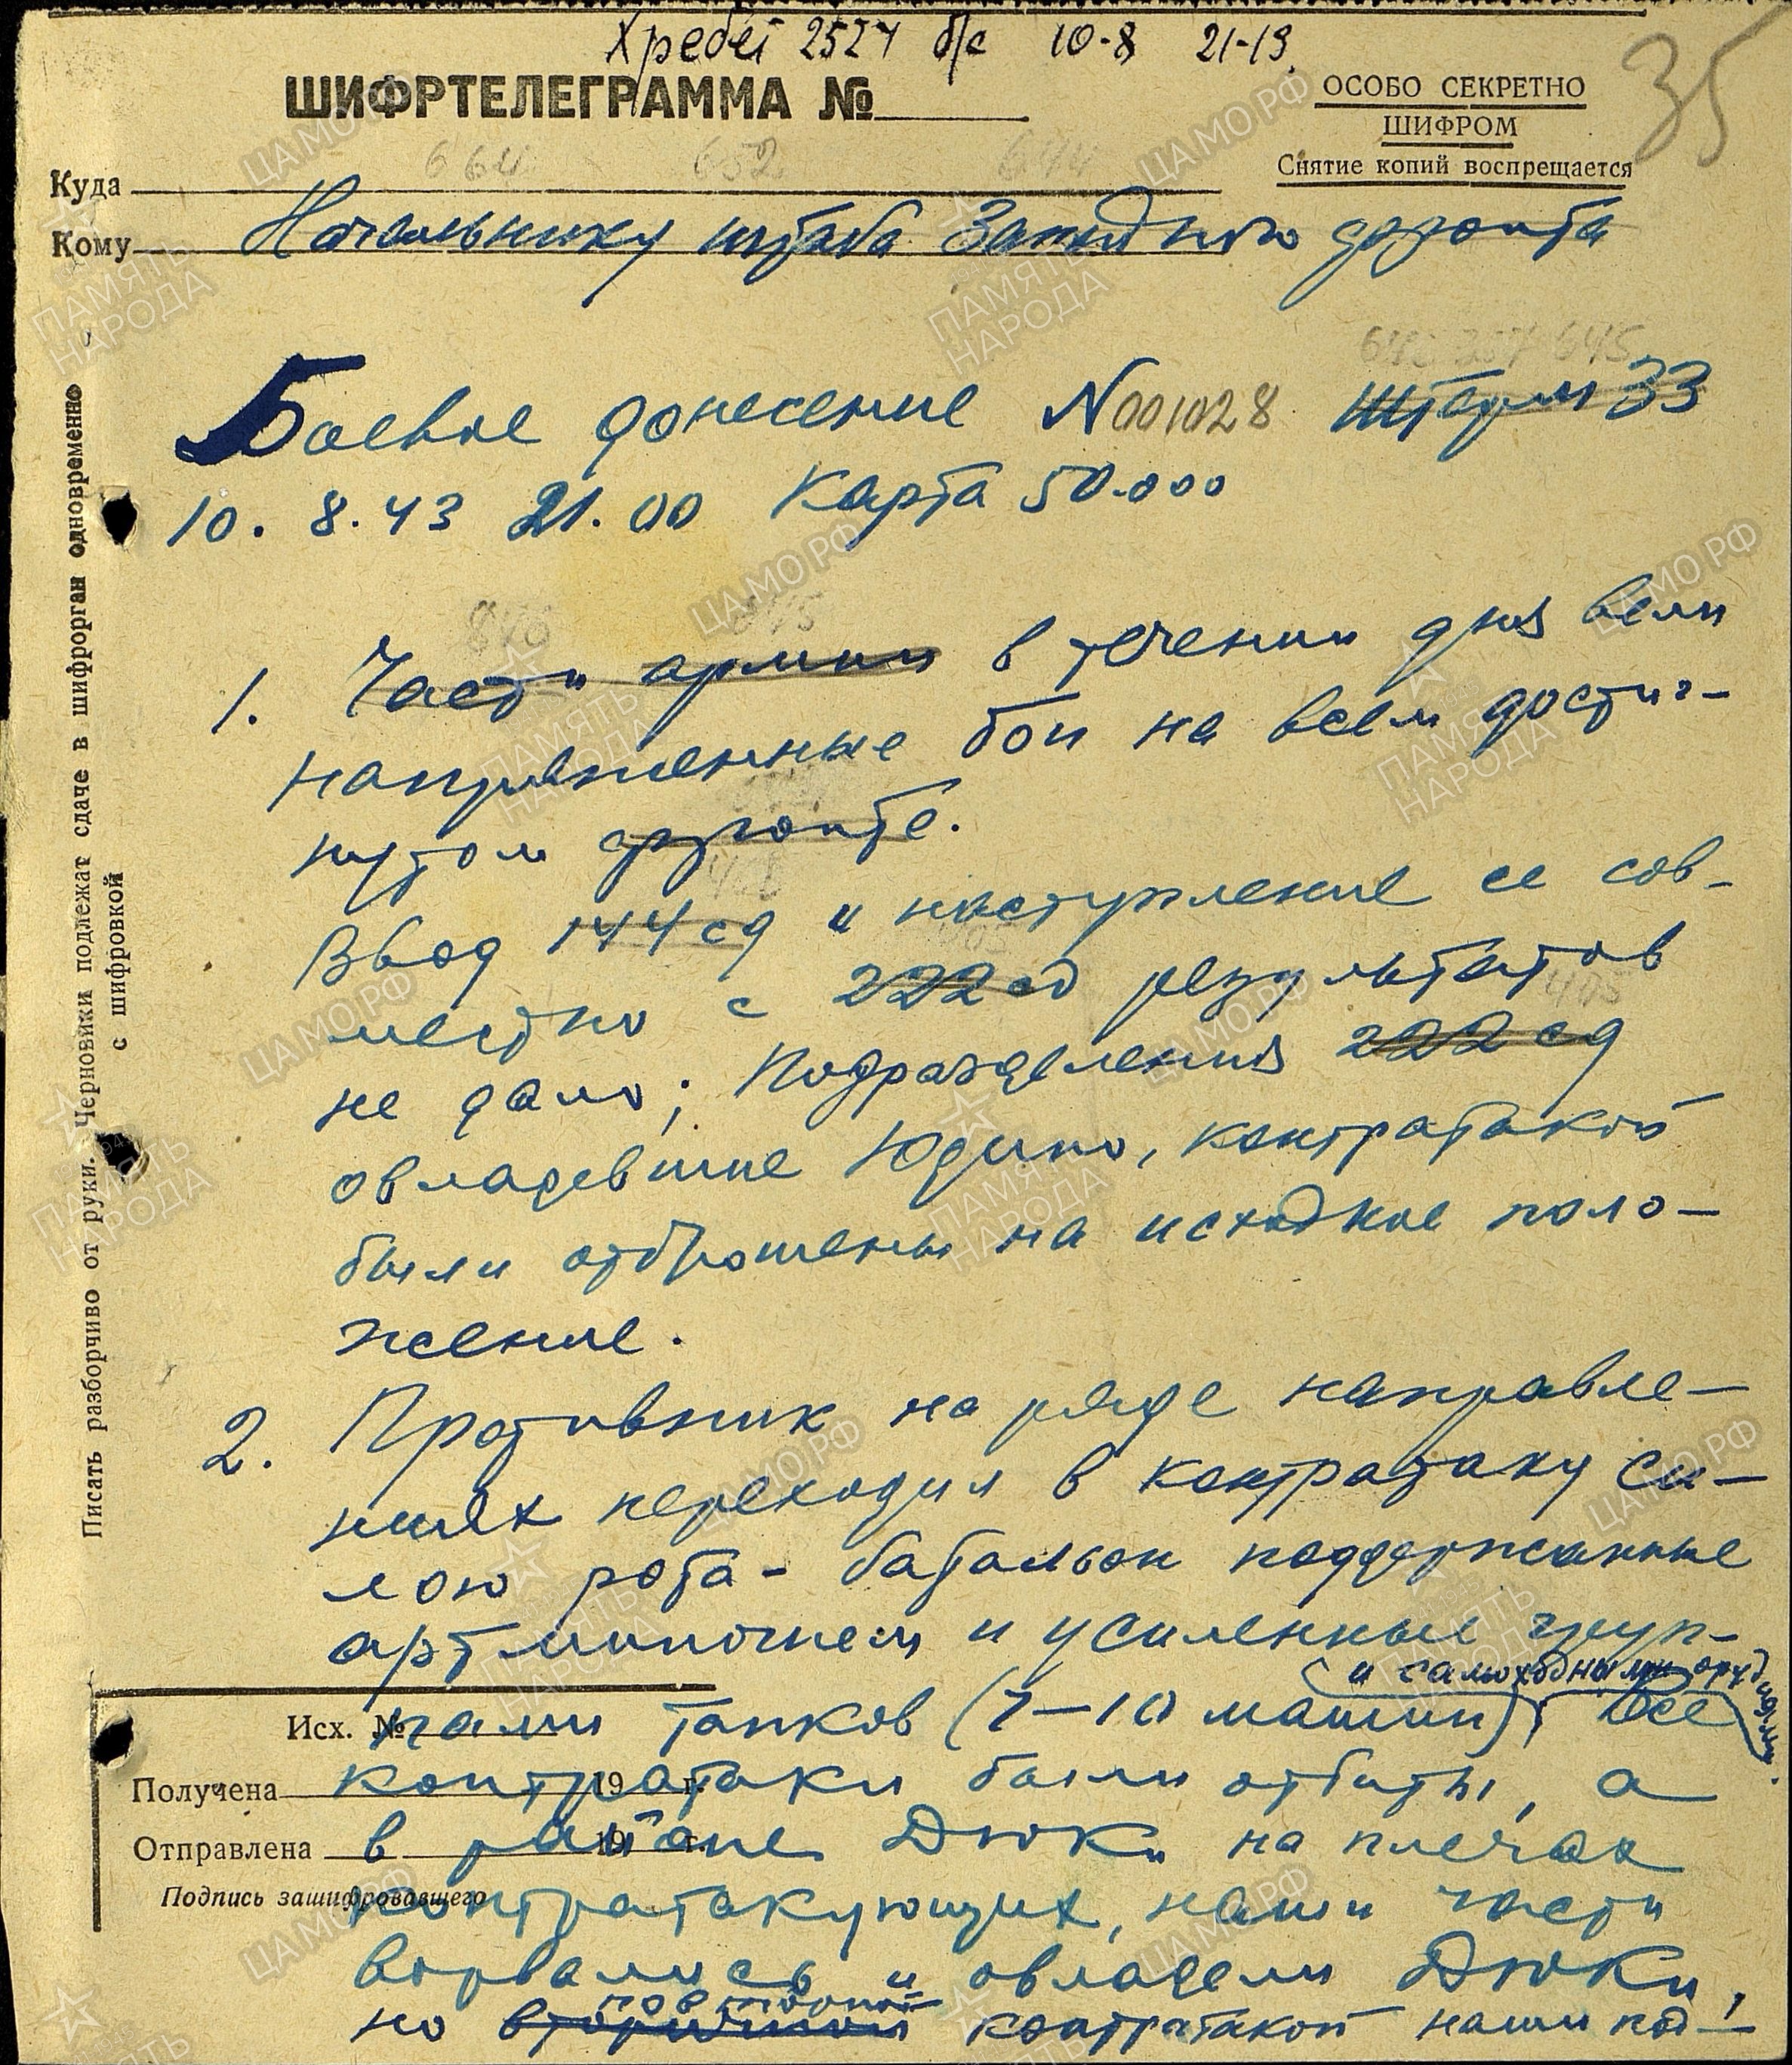 Хребет 2527 б/с 10-8 21-19.
ШИФРТЕЛЕГРАММА №
ОСОБО СЕКРЕТНО
ШИФРОМ
Снятие копий воспрещается
35
664 652 644
Куда
Кому Начальнику штаба Западного фронта
Боевое донесение N001028 Штарм 33
10. 8. 43 21.00 Карта 50.000
1. Части армии в течении дня вели
напряженные бои на всем достиг-
нутом фронте.
Ввод 144 сд и наступление ее сов-
местно с 222 сд результатов
не дало; Подразделения 222 сд
овладевшие Юдино, контратакой
были отброшены на исходное поло-
жение.
2. Противник на ряде направле-
ниях переходил в контратаку си-
лою рота - батальон поддержанные
артминогнем и усиленные груп-
и самоходными орудиями.
пами танков (7-10 машин) Все
контратаки были отбиты, а
в районе Дюки на плечах
контратакующих, наши части
ворвались и овладели Дюки,
повторной
но вторичной контратакой наши под-
Исх. №
Получена 19 г.
Отправлена 19 г.
Подпись зашифровавшего
Писать разборчиво от руки. Черновики подлежат сдаче в шифрорган одновременно
с шифровкой
ЦАМО.РФ
ПАМЯТЬ
НАРОДА